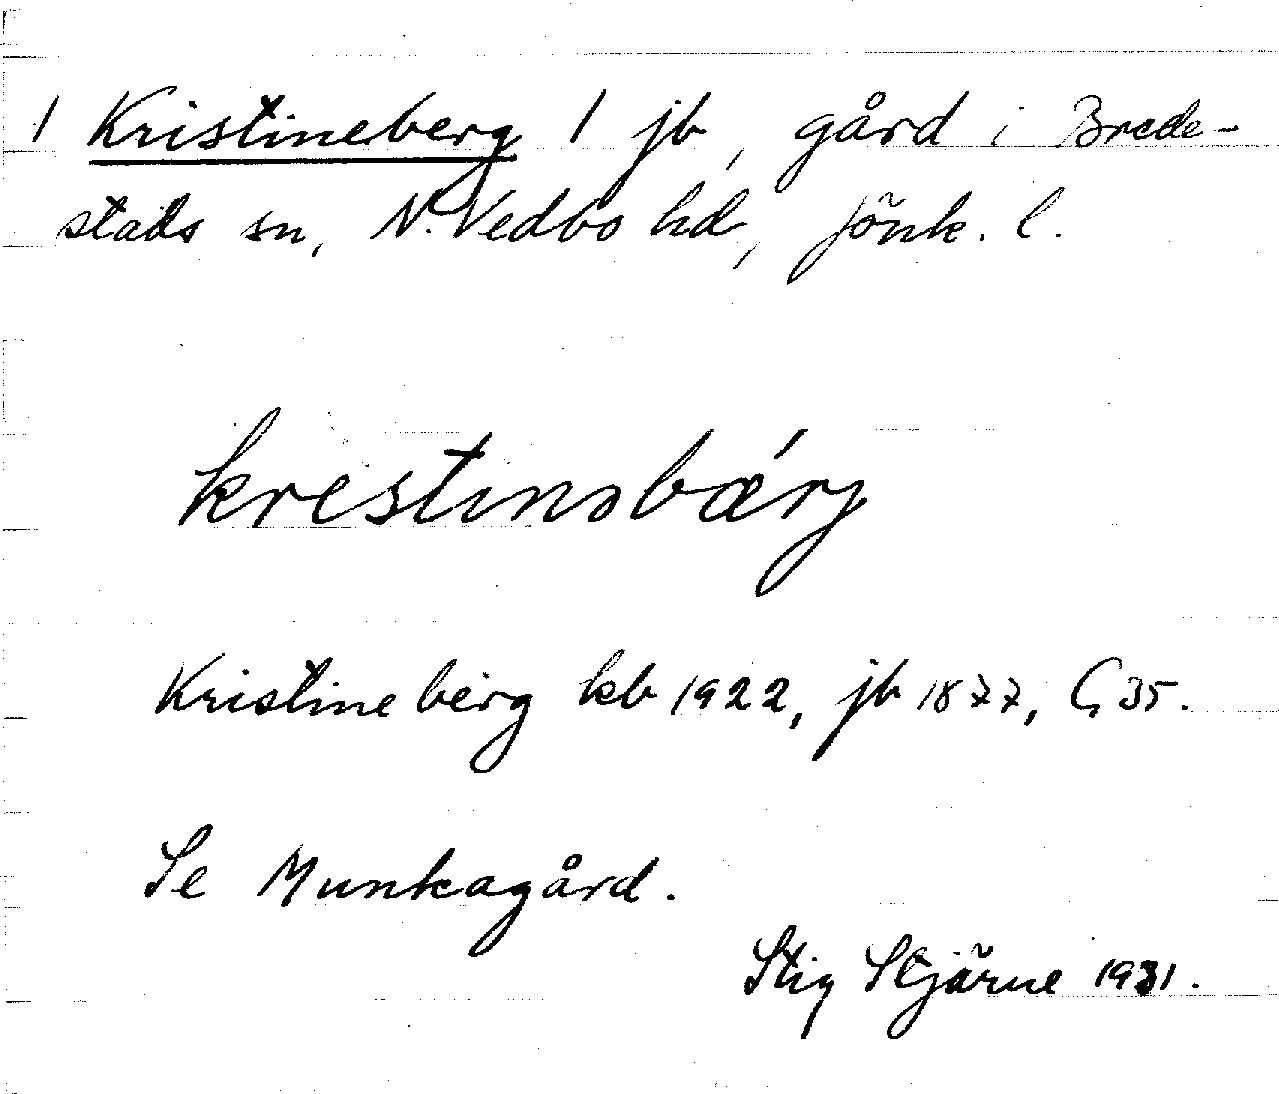 1 Kristineberg 1 jb, gård i Brede-
stads sn, N. Vedbo hd, Jönk. l.
krestinəbǽrj
Kristineberg kb 1922, jb 1877, G 35.
Se Munkagård.
Stig Stjärne 1931.